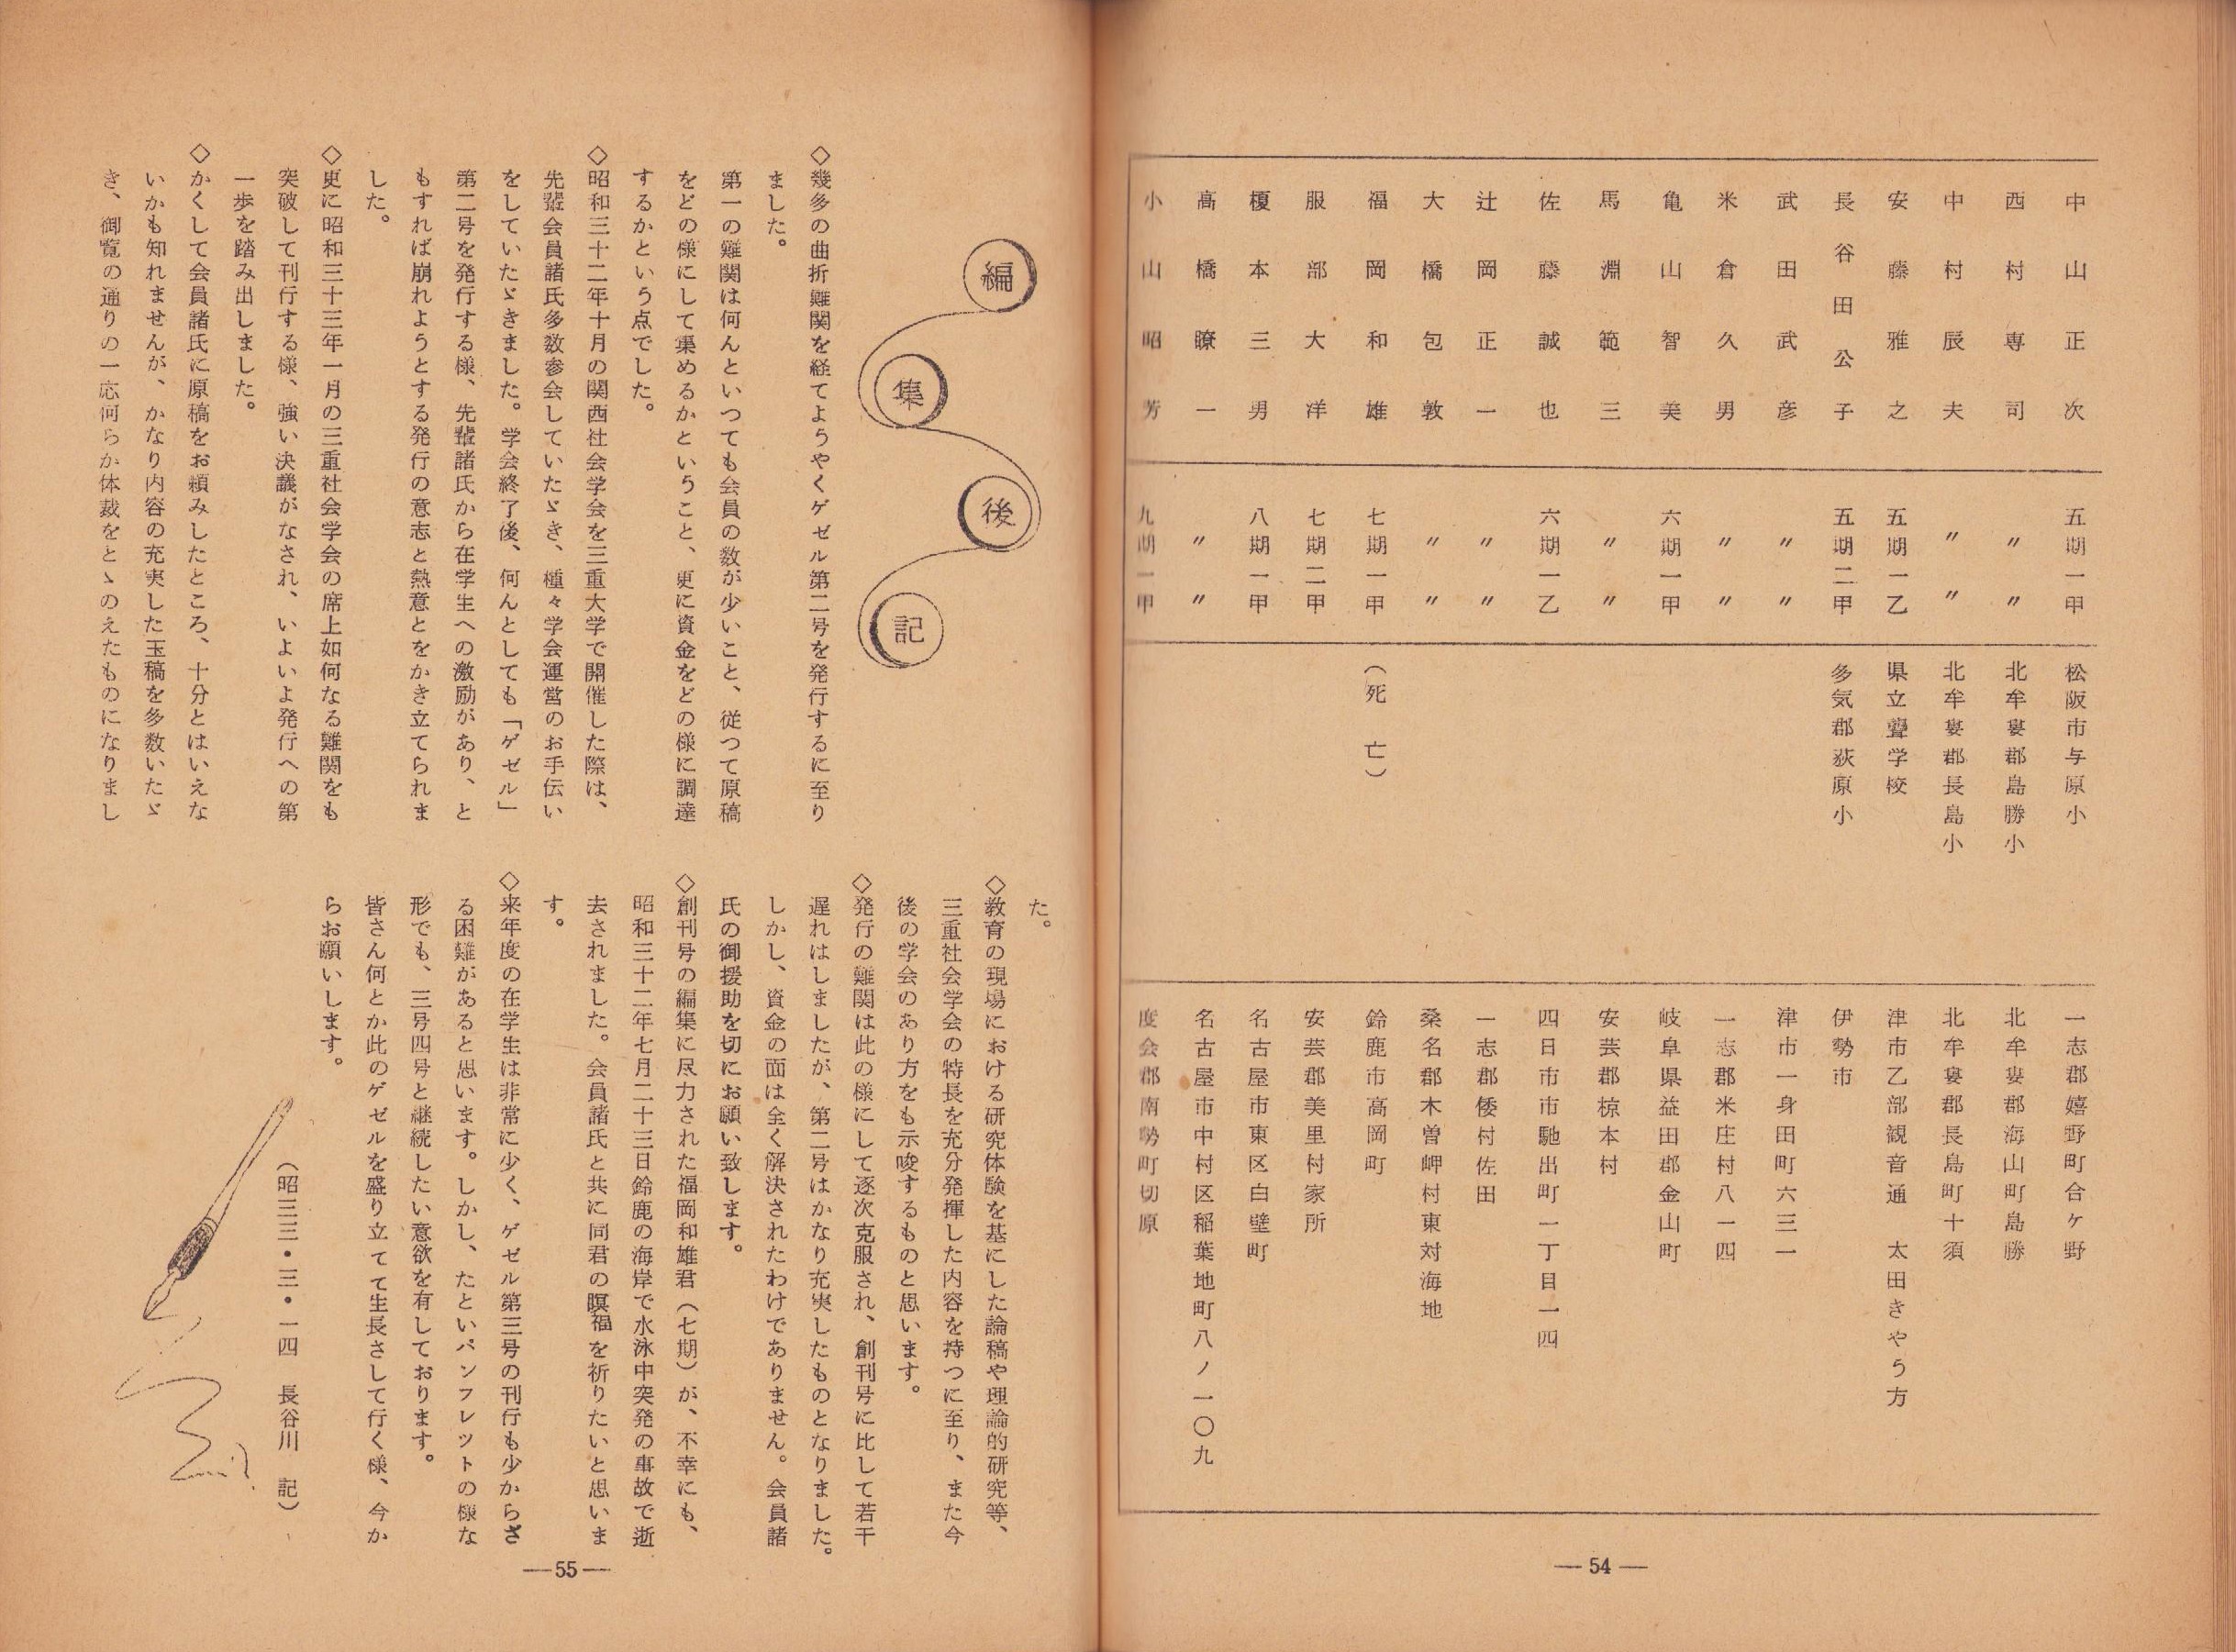 中山正次　五期一甲　松阪市与原小　一志郡嬉野町合ヶ野
西村専司　〃〃　北牟婁郡島勝小　北牟婁郡海山町島勝
中村辰夫　〃〃　北牟婁郡長島小　北牟婁郡長島町十須
安藤雅之　五期一乙　県立聾学校　津市乙部観音通　太田きやう方
長谷田公子　五期二甲　多気郡荻原小　伊勢市
武田武彦　〃〃　津市一身田町六三一
米倉久男　〃〃　一志郡米庄村八一四
亀山智美　六期一甲　岐阜県益田郡金山町
馬淵範三　〃〃　安芸郡椋本村
佐藤誠也　六期一乙　四日市市馳出町一丁目一四
辻岡正一　〃〃　一志郡倭村佐田
大橋包敦　〃〃　桑名郡木曽岬村東対海地
福岡和雄　七期一甲　（死亡）　鈴鹿市高岡町
服部大洋　七期二甲　安芸郡美里村家所
榎本三男　八期一甲　名古屋市東区白壁町
高橋暸一　〃〃　名古屋市中村区稲葉地町八ノ一〇九
小山昭芳　九期一甲　度会郡南勢町切原
—54—
編集後記
◇幾多の曲折難関を経てようやくゲゼル第二号を発行するに至り
ました。
第一の難関は何んといつても会員の数が少いこと、従つて原稿
をどの様にして集めるかということ、更に資金をどの様に調達
するかという点でした。
◇昭和三十二年十月の関西社会学会を三重大学で開催した際は、
先輩会員諸氏多数参会していたゞき、種々学会運営のお手伝い
をしていたゞきました。学会終了後、何んとしても「ゲゼル」
第二号を発行する様、先輩諸氏から在学生への激励があり、と
もすれば崩れようとする発行の意志と熱意とをかき立てられま
した。
◇更に昭和三十三年一月の三重社会学会の席上如何なる難関をも
突破して刊行する様、強い決議がなされ、いよいよ発行への第
一歩を踏み出しました。
◇かくして会員諸氏に原稿をお頼みしたところ、十分とはいえな
いかも知れませんが、かなり内容の充実した玉稿を多数いたゞ
き、御覧の通りの一応何らか体裁をとゝのえたものになりまし
た。
◇教育の現場における研究体験を基にした論稿や理論的研究等、
三重社会学会の特長を充分発揮した内容を持つに至り、また今
後の学会のあり方をも示唆するものと思います。
◇発行の難関は此の様にして逐次克服され、創刊号に比して若干
遅れはしましたが、第二号はかなり充実したものとなりました。
しかし、資金の面は全く解決されたわけでありません。会員諸
氏の御援助を切にお願い致します。
◇創刊号の編集に尽力された福岡和雄君（七期）が、不幸にも、
昭和三十二年七月二十三日鈴鹿の海岸で水泳中突発の事故で逝
去されました。会員諸氏と共に同君の瞑福を祈りたいと思いま
す。
◇来年度の在学生は非常に少く、ゲゼル第三号の刊行も少からざ
る困難があると思います。しかし、たといパンフレットの様な
形でも、三号四号と継続したい意欲を有しております。
皆さん何とか此のゲゼルを盛り立てて生長さして行く様、今か
らお願いします。
（昭三三・三・一四　長谷川　記）
—55—